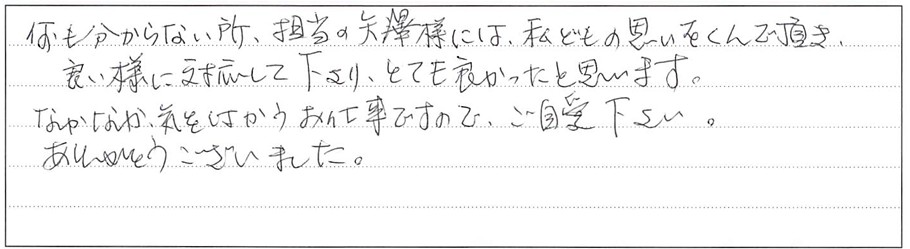 何も分からない所、担当の矢澤様には、私どもの思いをくんで頂き、
良い様に対応して下さり、とても良かったと思います。
なかなか、気をつかうお仕事ですので、ご自愛下さい。
ありがとうございました。